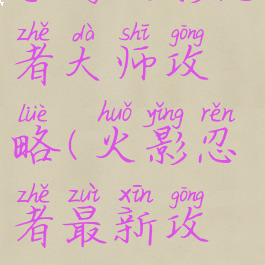 zhě dà shī gōng
者大师攻
lüè huǒ yǐng rěn
略(火影忍
zhě zuì xīn gōng
者最新攻